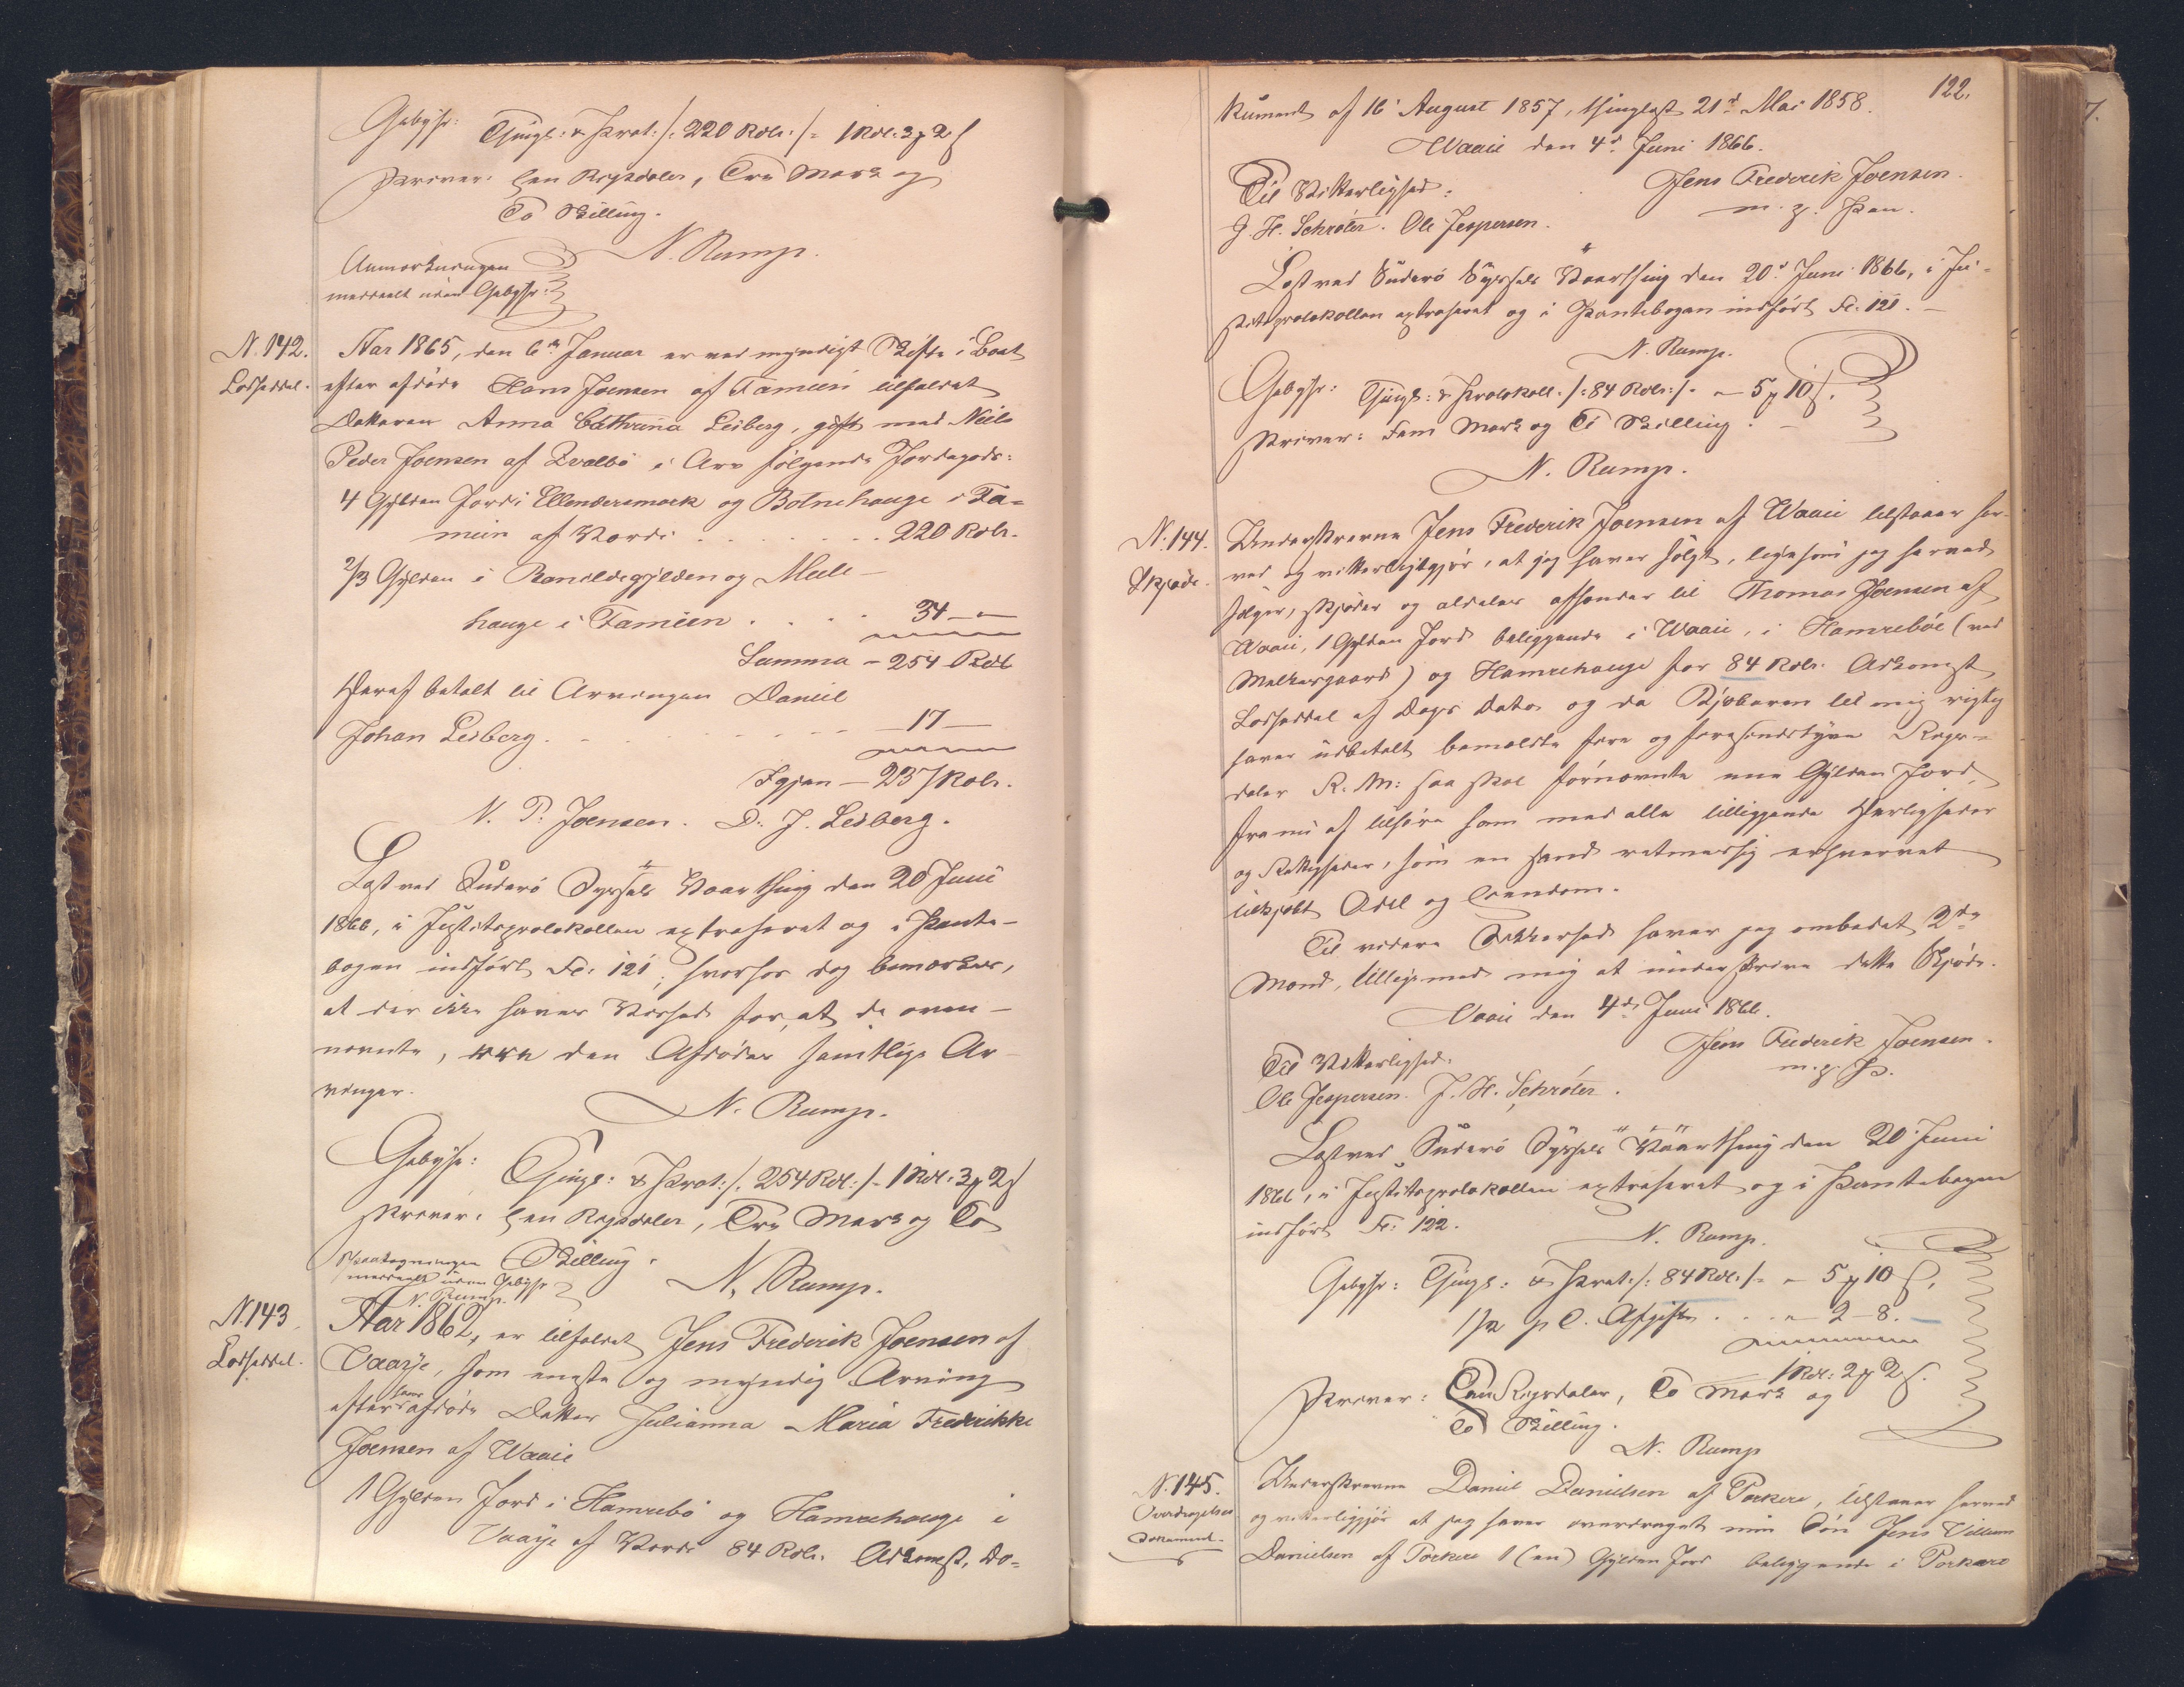 Gebyhr: Thingl: & Prot: /: 220 Rdlr: /= 1 Rdl: 3 ꝶ 2 ß
skriver: Een Rigsdaler, Tre Mark og
To Skilling.
N. Rump.
Anmærkningen
meddeelt uden Gebyhr.
N. 142.
Lodseddel.
Aar 1865, den 6te Januar er ved myndigt Skifte i Boet
efter afdøde Hans Joensen af Famien tilfaldet
Datteren Anna Cathrina Leiberg, gift med Niels
Peder Joensen af Qvalbø i Arv følgende Jordegods:
4 Gylden Jord i Ellendersmark og Bolnehauge i Fa=
mien af Værdi . . . . 220 Rdlr.
2/3 Gylden i Ranildegylden og Meele-
hauge i Famien . . . . 34 – "
Summa – 254 Rdl
Heraf betalt til Arvingen Daniel
Johan Leiberg . . . . 17 –
Igjen – 237 Rdlr.
N. P. Joensen. D. J. Leiberg.
Læst ved Suderø Syssels Vaarthing den 20 Juni
1866, i Justitsprotokollen extraheret og i Pante-
bogen indført Fol: 121, hvorhos dog bemærkes,
at der ikke haves Vished for, at de oven-
nævnte, ere den Afdødes samtlige Ar-
vinger.
N. Rump.
Gebyhr: Thingl: & Prot: /: 254 Rdl: /= 1 Rdl: 3 ꝶ 2 ß
skriver: Een Rigsdaler, Tre Mark og To
Skilling.
Paategningen
meddeelt uden Gebyhr
N. Rump.
N. Rump.
N. 143
Lodseddel.
Aar 1862, er tilfaldet Jens Frederik Joensen af
Vaaye, som eneste og myndig Arving
efter hans afdøde Datter Julianna Maria Frederikke
Joensen af Waaie
1 Gylden Jord i Hamrebø og Hamrehauge i
Vaaye af Værdi 84 Rdlr. Adkomst, Do=
122.
kument af 16' August 1857, thinglæst 21d Mai 1858.
Waaie den 4d Juni 1866.
Jens Frederik Joensen.
m. p. Pen.
Til Vitterlighed:
J. H. Schrøter. Ole Jespersen.
Læst ved Suderø Syssels Vaarthing den 20d Juni 1866, i Ju-
stitsprotokollen extraheret og i Pantebogen indført Fol: 121. –
N. Rump.
Gebyhr: Thingl: & Protokoll. /: 84 Rdlr: /= " 5 ꝶ 10 ß.
skriver: Fem Mark og Ti Skilling. –
N. Rump.
N. 144.
Skjøde.
Underskrevne Jens Frederik Joensen af Waaie tilstaaer her-
ved og vitterliggjør, at jeg haver solgt, ligesom jeg herved
sælger, skjøder og aldeles afhænder til Thomas Joensen af
Waaie, 1 Gylden Jord beliggende i Waaie, i Hamrebøe (ved
Melkersgaard) og Hamrehauge for 84 Rdlr. Adkomst
Lodseddel af Dags Dato og da Kjøberen til mig rigtig
haver udbetalt bemældte fire og firesindstyve Rigs-
daler R. M: saa skal førnævnte een Gylden Jord,
fra nu af tilhøre ham med alle tilliggende Herligheder
og Rettigheder, som en sand retmæssig erhvervet
tilkjøbt Odel og Eiendom.
Til videre Sikkerhed haver jeg ombedet 2de
Mænd, tilligemed mig at underskrive dette Skjøde.
Vaaie den 4de Juni 1866.
Jens Frederik Joensen.
m. p. P.
Til Vitterlighed:
Ole Jespersen. J. H. Schrøter.
Læst ved Suderø Syssels Vaarthing den 20' Juni
1866, i Justitsprotokollen extraheret og i Pantebogen
indført Fol: 122.
N. Rump.
Gebyhr: Thingl: & Prot: /: 84 Rdl: /= " 5 ꝶ 10 ß.
1/2 p C. Afgift . . . " 2 – 8. –
1 Rdl: 2 ꝶ 2 ß.
skriver: Een Rigsdaler, To Mark og
To Skilling.
N. Rump
N. 145.
Overdragelses
Document.
Underskrevne Daniel Danielsen af Porkere, tilstaaer herved
og vitterliggjør at jeg haver overdraget min Søn Jens Villum
Danielsen af Porkere 1 (en) Gylden Jord beliggende i Porkere